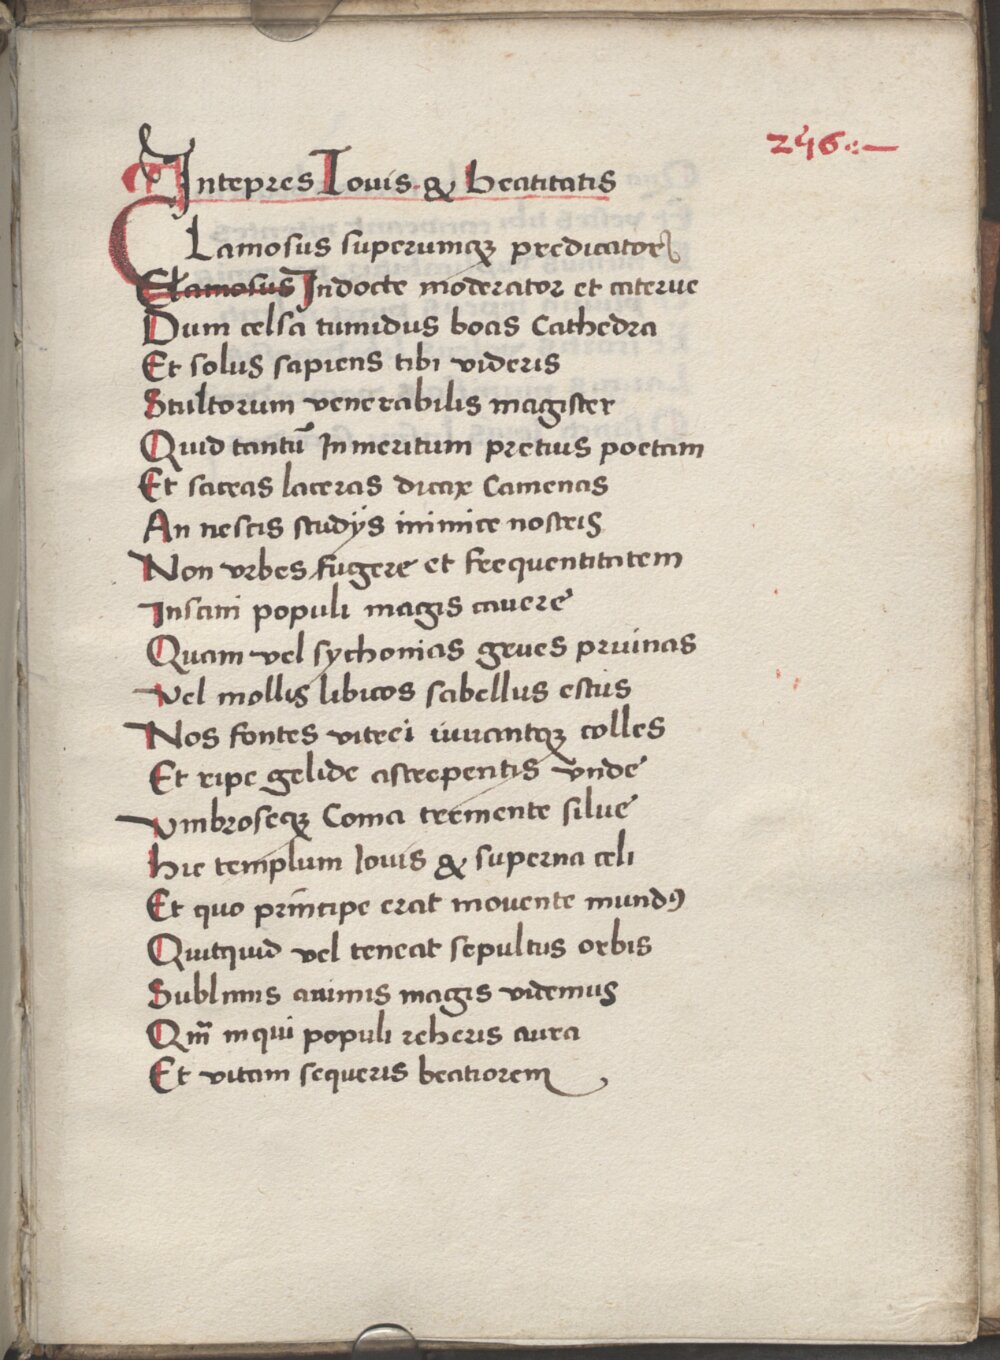 246.:—
Intepres Iouis & beatitatis
Clamosus superumqȝ predicator
Clamosus Indocte moderator et caterue
Dum celsa tumidus boas Cathedra
Et solus sapiens tibi videris
Stultorum venerabilis magister
Quid tantū Inmeritum premis poetam
Et sacras laceras dicax Camenas
An nescis studijs inimice nostris
Non vrbes fugere et frequentitatem
Insani populi magis cauere
Quam vel sythonias grues pruinas
Vel mollis libicos sabellus estus
Nos fontes vitrei iuuantqȝ colles
Et ripe gelide astrepentis vnde
Vmbroseqȝ Coma tremente silue
Hic templum Iouis & superna celi
Et quo prīncipe erat mouente mundꝰ
Quitquid vel teneat sepultus orbis
Sublimis animis magis videmus
Qm̄ inqui populi reheris aura
Et vitam sequeris beatiorem